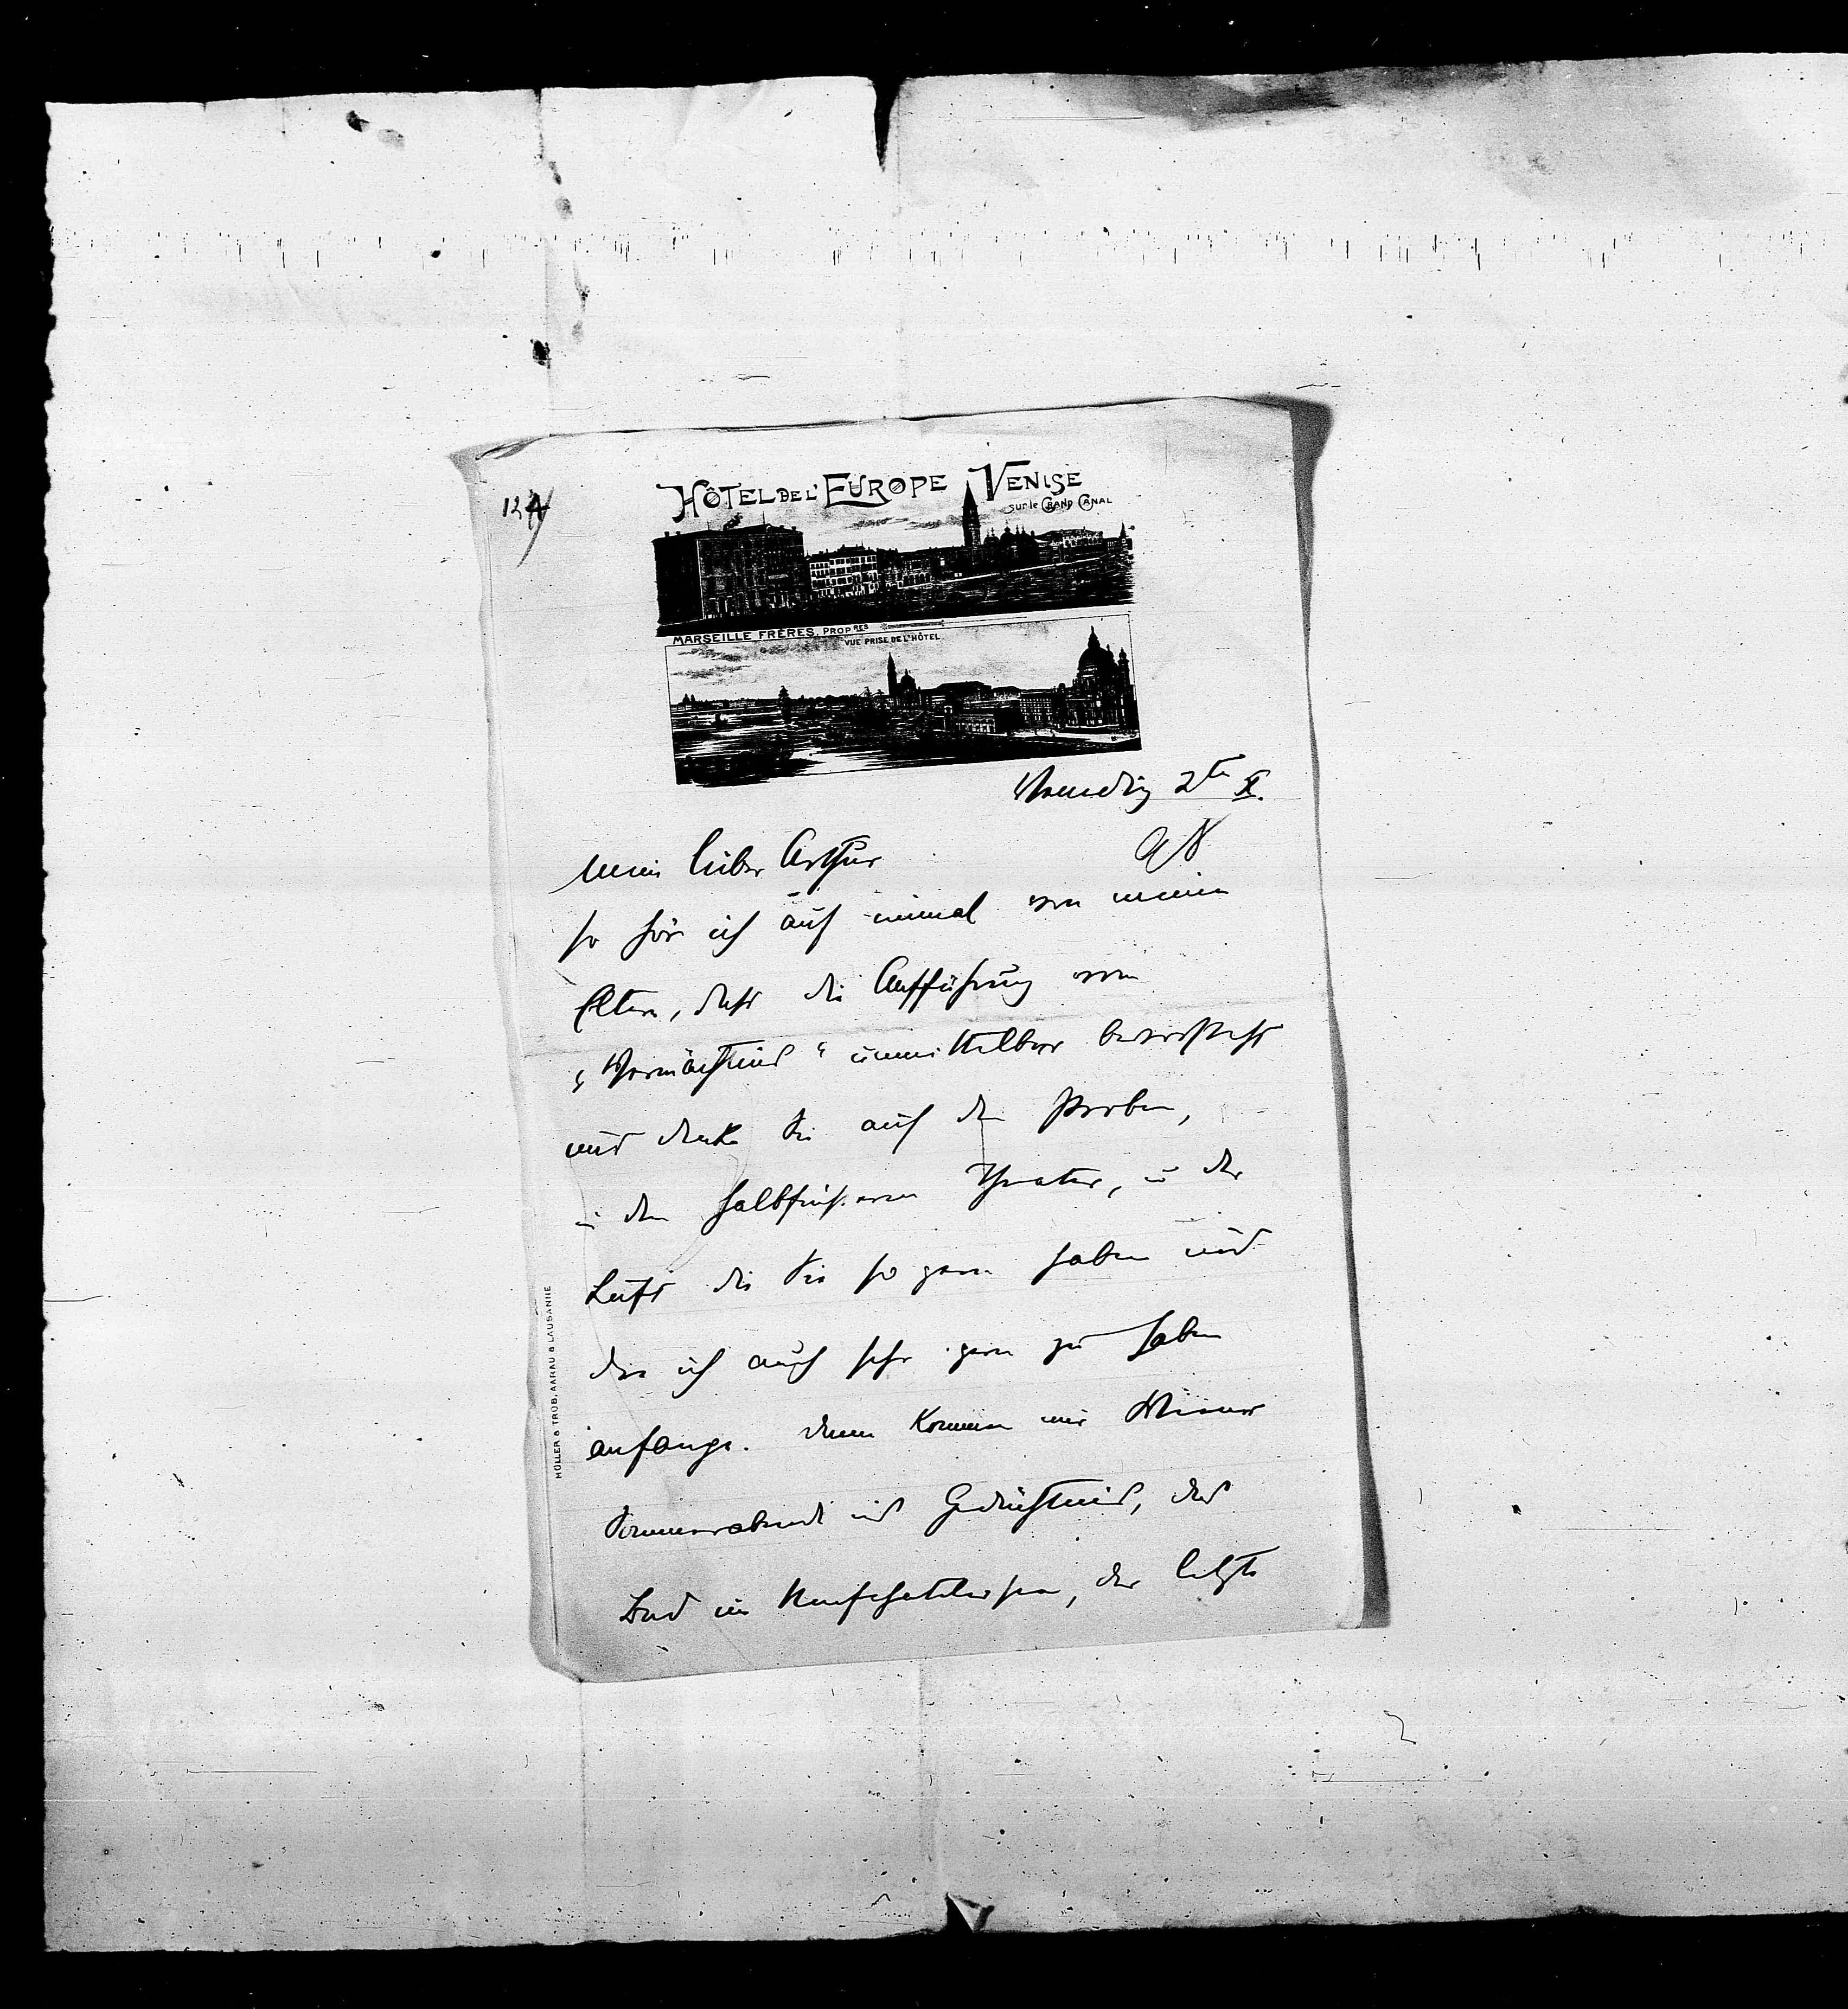 124
HÔTEL DE L'EUROPE VENISE
sur le GRAND CANAL
MARSEILLE FRÈRES, PROPRES
VUE PRISE DE L'HÔTEL
Venedig 2te X.
98
mein lieber Arthur
so hör ich auf einmal von meinen
Eltern, dass die Aufführung vom
„Vermächtnis“ unmittelbar bevorsteht
und denke Sie auf den Proben,
in dem halbfinsteren Theater, in der
Luft die Sie so gern haben und
die ich auch sehr gern zu haben
anfange. dann kommen mir Wiener
Sommerabende ins Gedächtnis, das
Bad im Neufchatelersee, der letzte
MÜLLER & TRÜB, AARAU & LAUSANNE